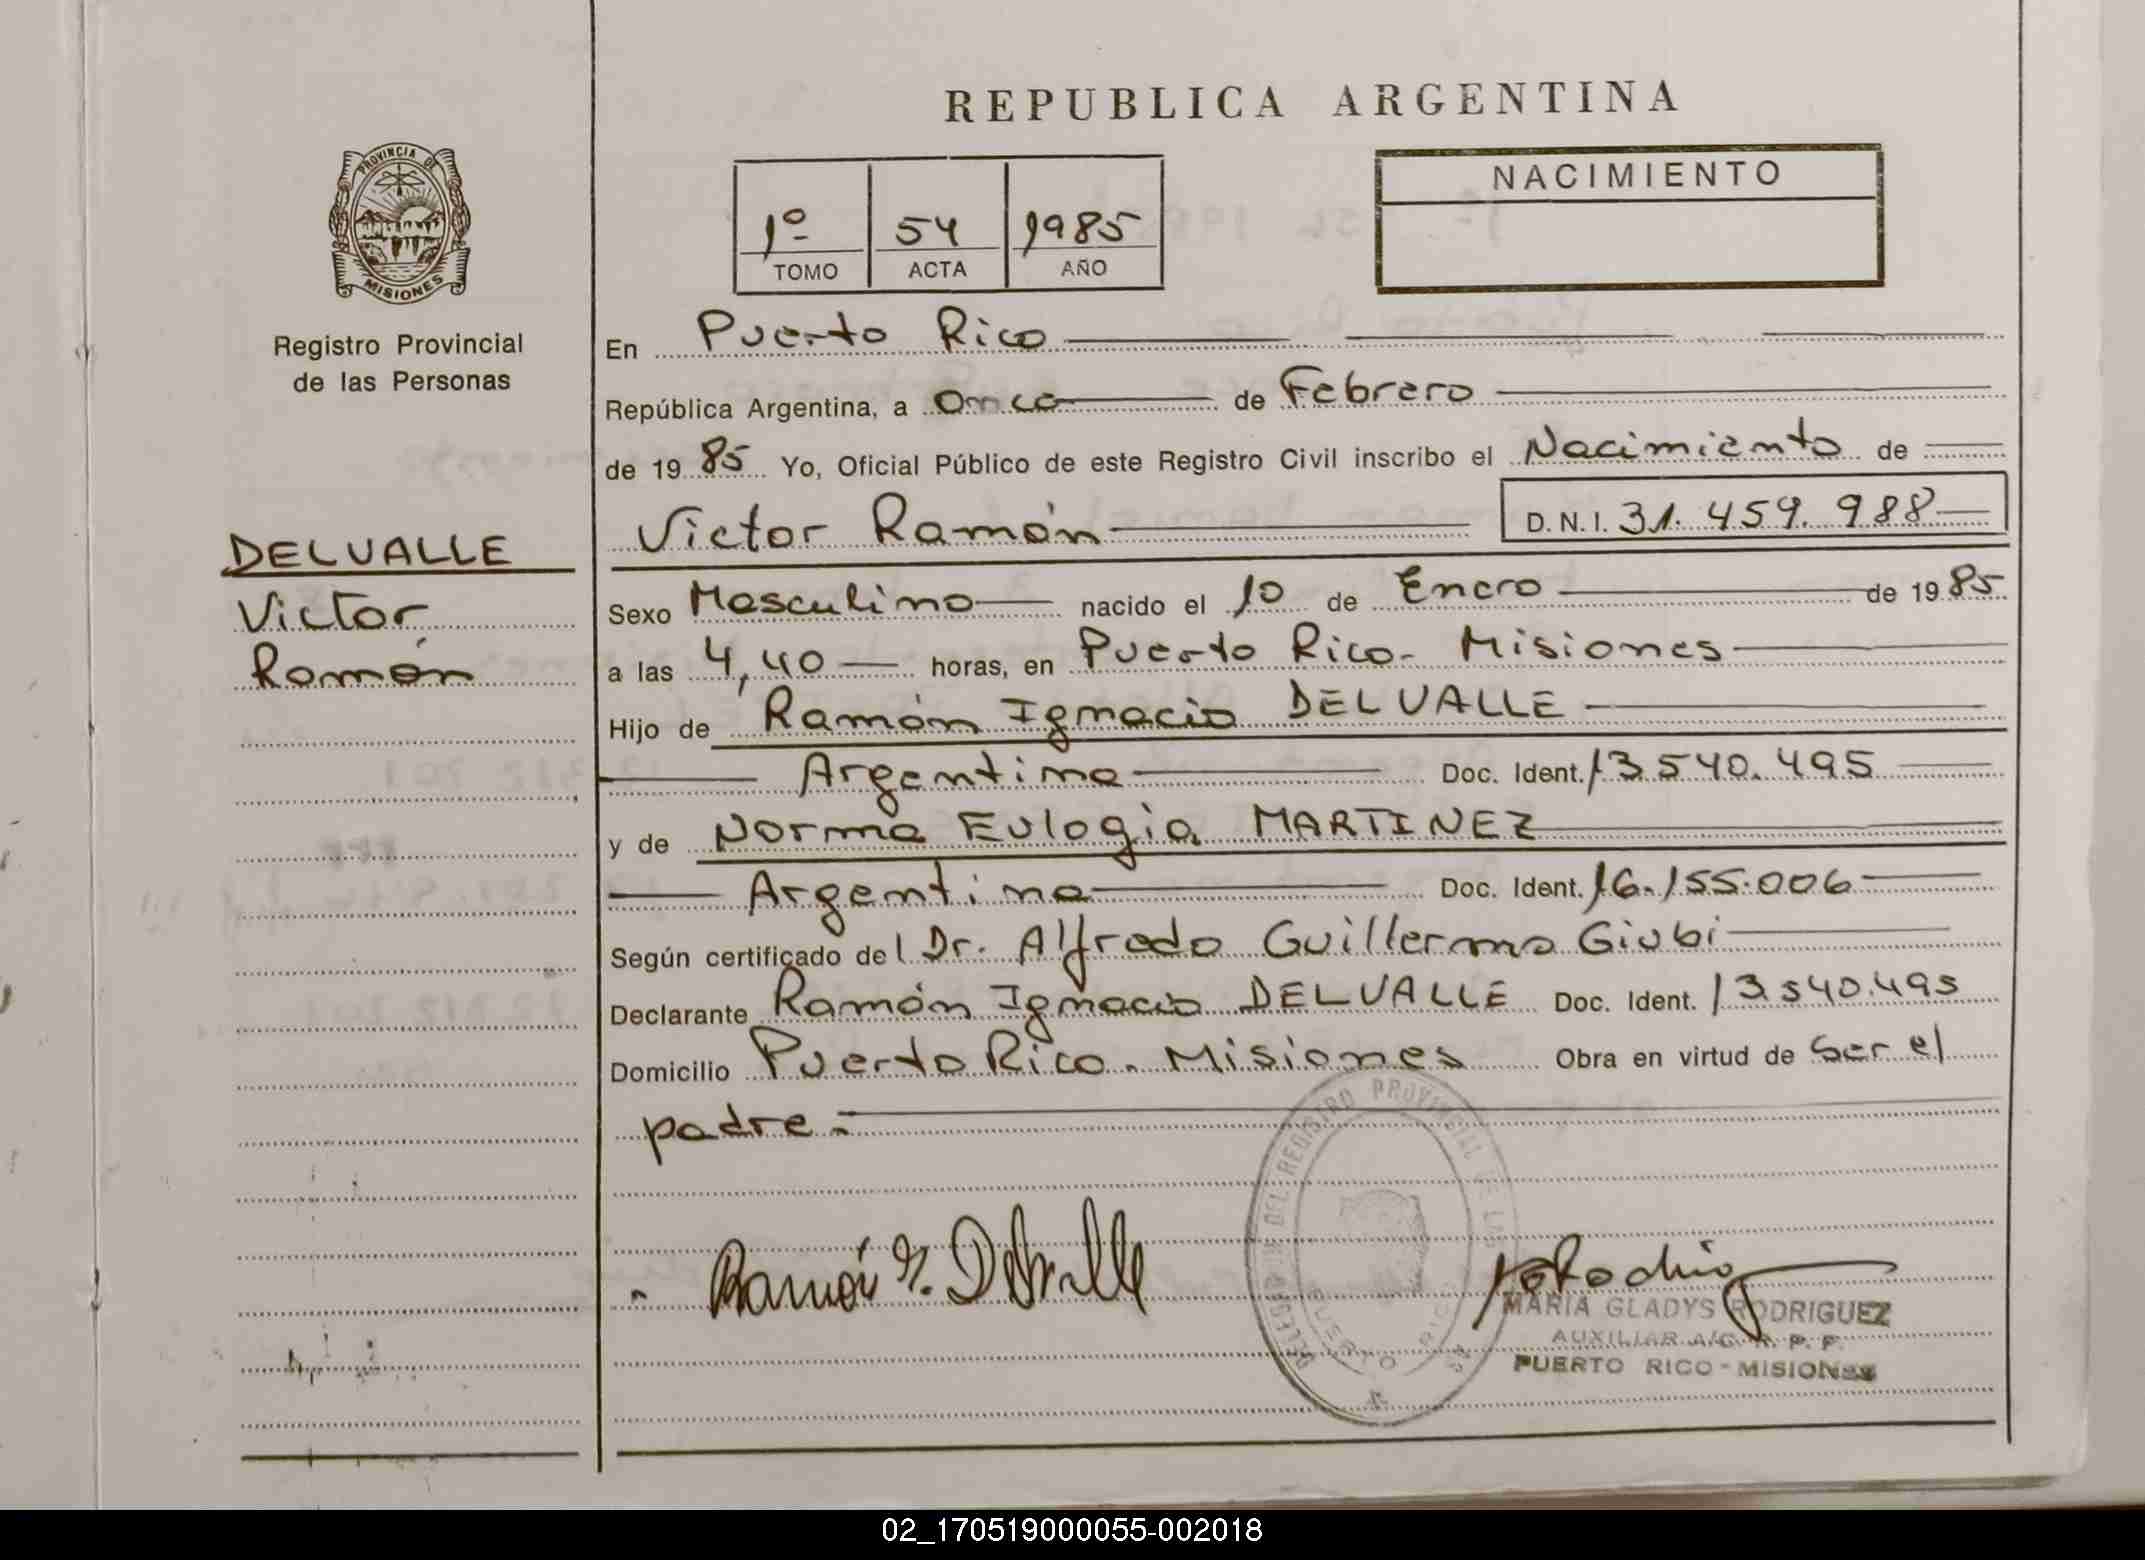 REPUBLICA ARGENTINA
PROVINCIA DE
MISIONES
Registro Provincial
de las Personas
1º 54 1985
TOMO ACTA AÑO
NACIMIENTO
En Puerto Rico
República Argentina, a once de Febrero
de 1985 Yo, Oficial Público de este Registro Civil inscribo el Nacimiento de
Victor Ramón D.N.I. 31.459.988
DELVALLE
Victor
Ramón
Sexo Masculino nacido el 10 de Enero de 1985
a las 4,40 horas, en Puerto Rico- Misiones
Hijo de Ramón Ignacio DELVALLE
Argentino Doc. Ident. 13.540.495
y de Norma Eulogia MARTINEZ
Argentina Doc. Ident. 16.155.006
Según certificado del Dr. Alfredo Guillermo Giubi
Declarante Ramón Ignacio DELVALLE Doc. Ident. 13.540.495
Domicilio Puerto Rico. Misiones Obra en virtud de ser el
padre.-
DELEGACION DEL REGISTRO PROVINCIAL DE LAS
PUERTO RICO
Ramón I. Delvalle
MARIA GLADYS RODRIGUEZ
AUXILIAR A/C. R. P. P.
PUERTO RICO - MISIONES
02_170519000055-002018